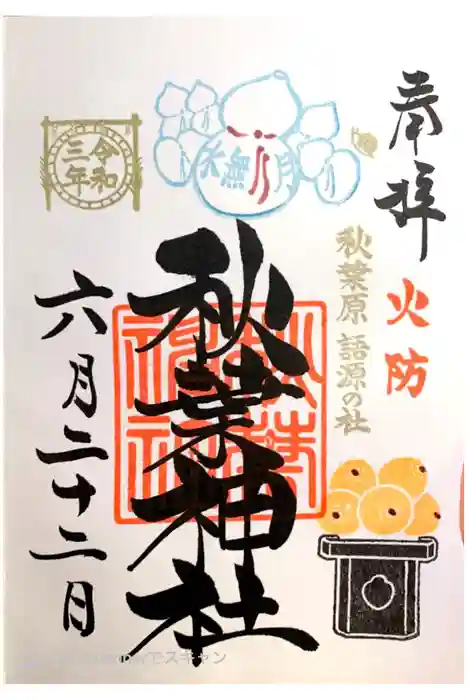 奉拝
火防
秋葉原 語源の社
水無月
秋葉神社
令和
三年
六月二十二日
でスキャン